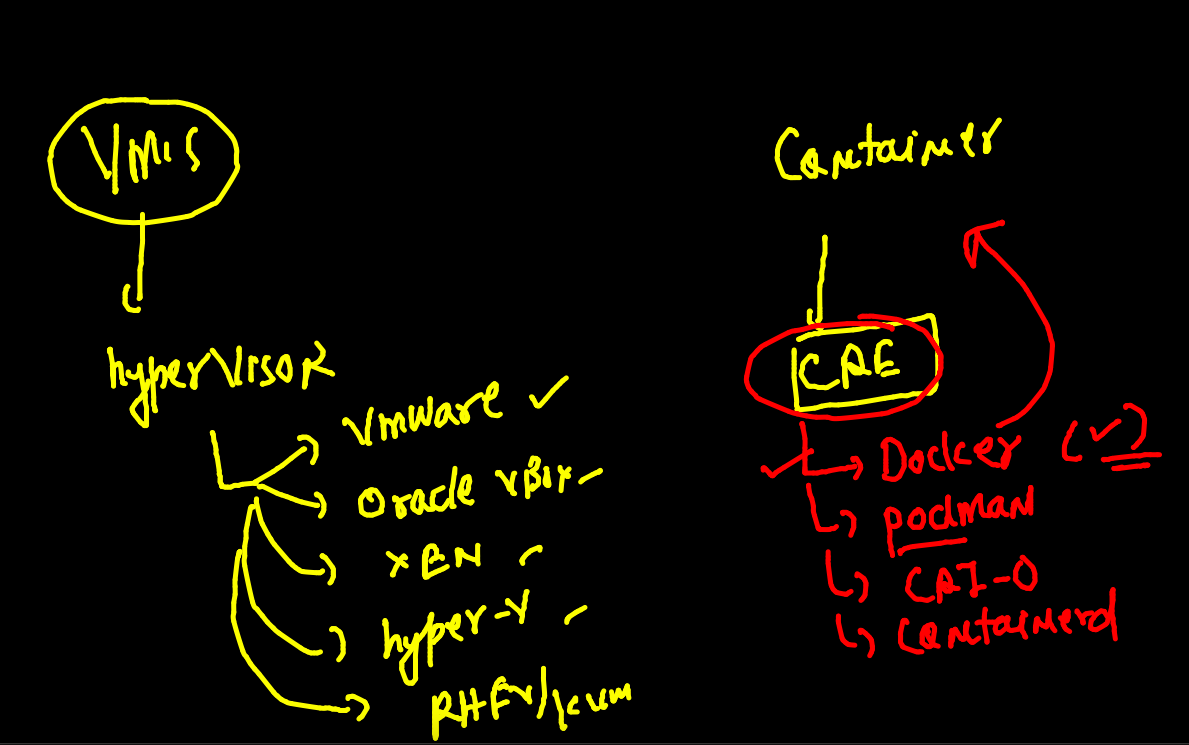 VM's
hypervisor
Vmware
Oracle vBox
XEN
hyper-v
RHEV/kvm
Container
CRE
Docker
podman
CRI-O
Containerd